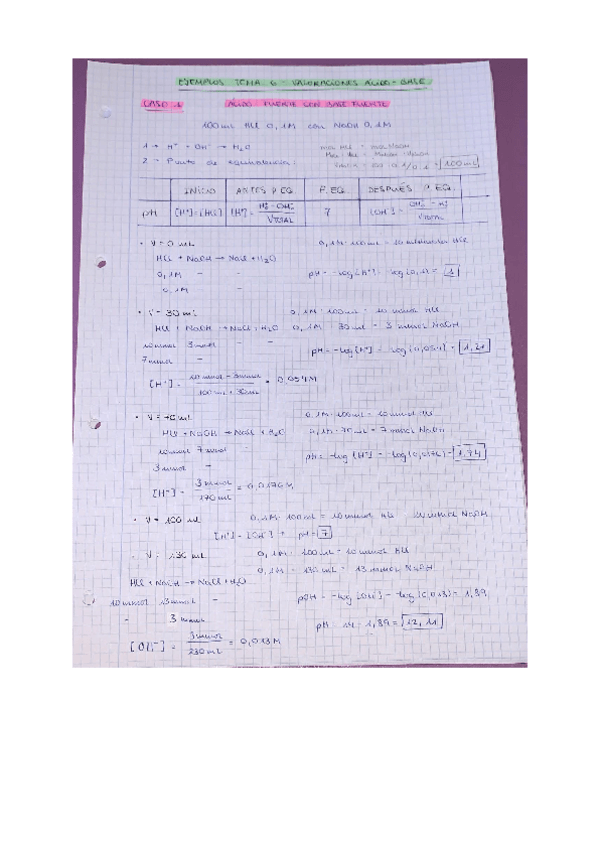 EJEMPLOS TEMA 6 - VALORACIONES ÁCIDO-BASE
CASO 1 ÁCIDO FUERTE CON BASE FUERTE
100 mL HCl 0,1M con NaOH 0,1M
1 → H⁺ + OH⁻ → H₂O mol HCl = mol NaOH
2 - Punto de equivalencia: 100 mL
INICIO ANTES P.EQ. P. EQ. DESPUÉS P. EQ.
pH [H⁺] = [HCl] [H⁺] = H⁺ - OH⁻ / V TOTAL 7 [OH⁻] = OH⁻ - H⁺ / V TOTAL
• V = 0 mL 0,1M · 100 mL = 10 HCl
HCl + NaOH → NaCl + H₂O
0,1M - - pH = -log [H⁺] = -log (0,1) = 1
0,1M -
• V = 30 mL 0,1M · 100 mL = 10 mmol HCl
HCl + NaOH → NaCl + H₂O 0,1M · 30 mL = 3 mmol NaOH
10 mmol 3 mmol - -
7 mmol - pH = -log [H⁺] = -log (0,054) = 1,27
[H⁺] = 10 mmol - 3 mmol / 100 mL + 30 mL = 0,054M
• V = 70 mL 0,1M · 100 mL = 10 mmol HCl
HCl + NaOH → NaCl + H₂O 0,1M · 70 mL = 7 mmol NaOH
10 mmol 7 mmol -
3 mmol - pH = -log [H⁺] = -log (0,0176) = 1,74
[H⁺] = 3 mmol / 170 mL = 0,0176M
• V = 100 mL 0,1M · 100 mL = 10 mmol HCl 10 mmol NaOH
[H⁺] = [OH⁻] pH = 7
• V = 130 mL 0,1M · 100 mL = 10 mmol HCl
0,1M · 130 mL = 13 mmol NaOH
HCl + NaOH → NaCl + H₂O
10 mmol 13 mmol - pOH = -log [OH⁻] = -log (0,013) = 1,89
- 3 mmol
pH = 14 - 1,89 = 12,11
[OH⁻] = 3 mmol / 230 mL = 0,013M